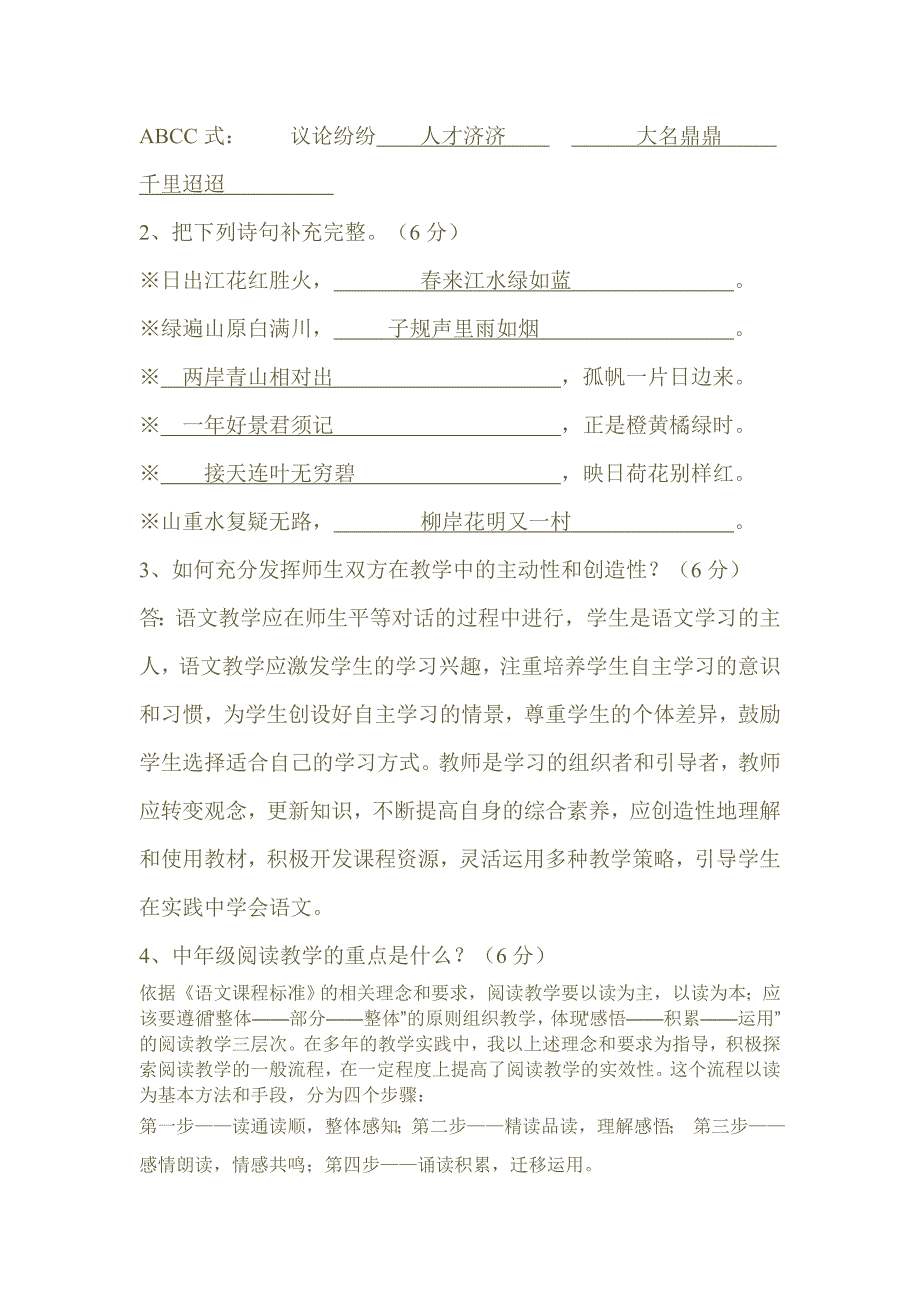 ABCC 式： 议论纷纷 人才济济 大名鼎鼎
千里迢迢
2、把下列诗句补充完整。（6 分）
※日出江花红胜火， 春来江水绿如蓝 。
※绿遍山原白满川， 子规声里雨如烟 。
※ 两岸青山相对出 ，孤帆一片日边来。
※ 一年好景君须记 ，正是橙黄橘绿时。
※ 接天连叶无穷碧 ，映日荷花别样红。
※山重水复疑无路， 柳岸花明又一村 。
3、如何充分发挥师生双方在教学中的主动性和创造性？（6 分）
答：语文教学应在师生平等对话的过程中进行，学生是语文学习的主
人，语文教学应激发学生的学习兴趣，注重培养学生自主学习的意识
和习惯，为学生创设好自主学习的情景，尊重学生的个体差异，鼓励
学生选择适合自己的学习方式。教师是学习的组织者和引导者，教师
应转变观念，更新知识，不断提高自身的综合素养，应创造性地理解
和使用教材，积极开发课程资源，灵活运用多种教学策略，引导学生
在实践中学会语文。
4、中年级阅读教学的重点是什么？（6 分）
依据《语文课程标准》的相关理念和要求，阅读教学要以读为主，以读为本；应
该要遵循“整体——部分——整体”的原则组织教学，体现“感悟——积累——运用”
的阅读教学三层次。在多年的教学实践中，我以上述理念和要求为指导，积极探
索阅读教学的一般流程，在一定程度上提高了阅读教学的实效性。这个流程以读
为基本方法和手段，分为四个步骤：
第一步——读通读顺，整体感知；第二步——精读品读，理解感悟； 第三步——
感情朗读，情感共鸣；第四步——诵读积累，迁移运用。